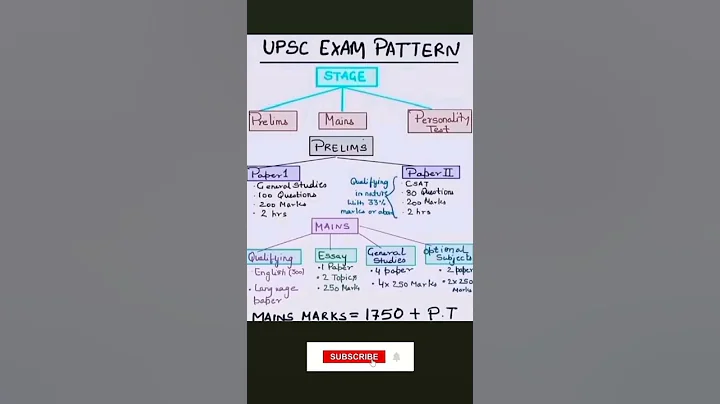 UPSC EXAM PATTERN
STAGE
Prelims
Mains
Personality
Test
PRELIM'S
Paper 1
• General Studies
• 100 Questions
• 200 Marks
• 2 hrs
Qualifying
in nature
With 33%
marks or above
Paper II
• CSAT
• 80 Questions
• 200 Marks
• 2 hrs
MAINS
Qualifying
• English (300)
• Language
paper
Essay
• 1 Paper
• 2 Topics
• 250 Marks
General
Studies
• 4 paper
• 4x 250 Marks
Optional
Subjects
• 2 paper
• 2x 250
Marks
MAINS MARKS = 1750 + P.T
SUBSCRIBE